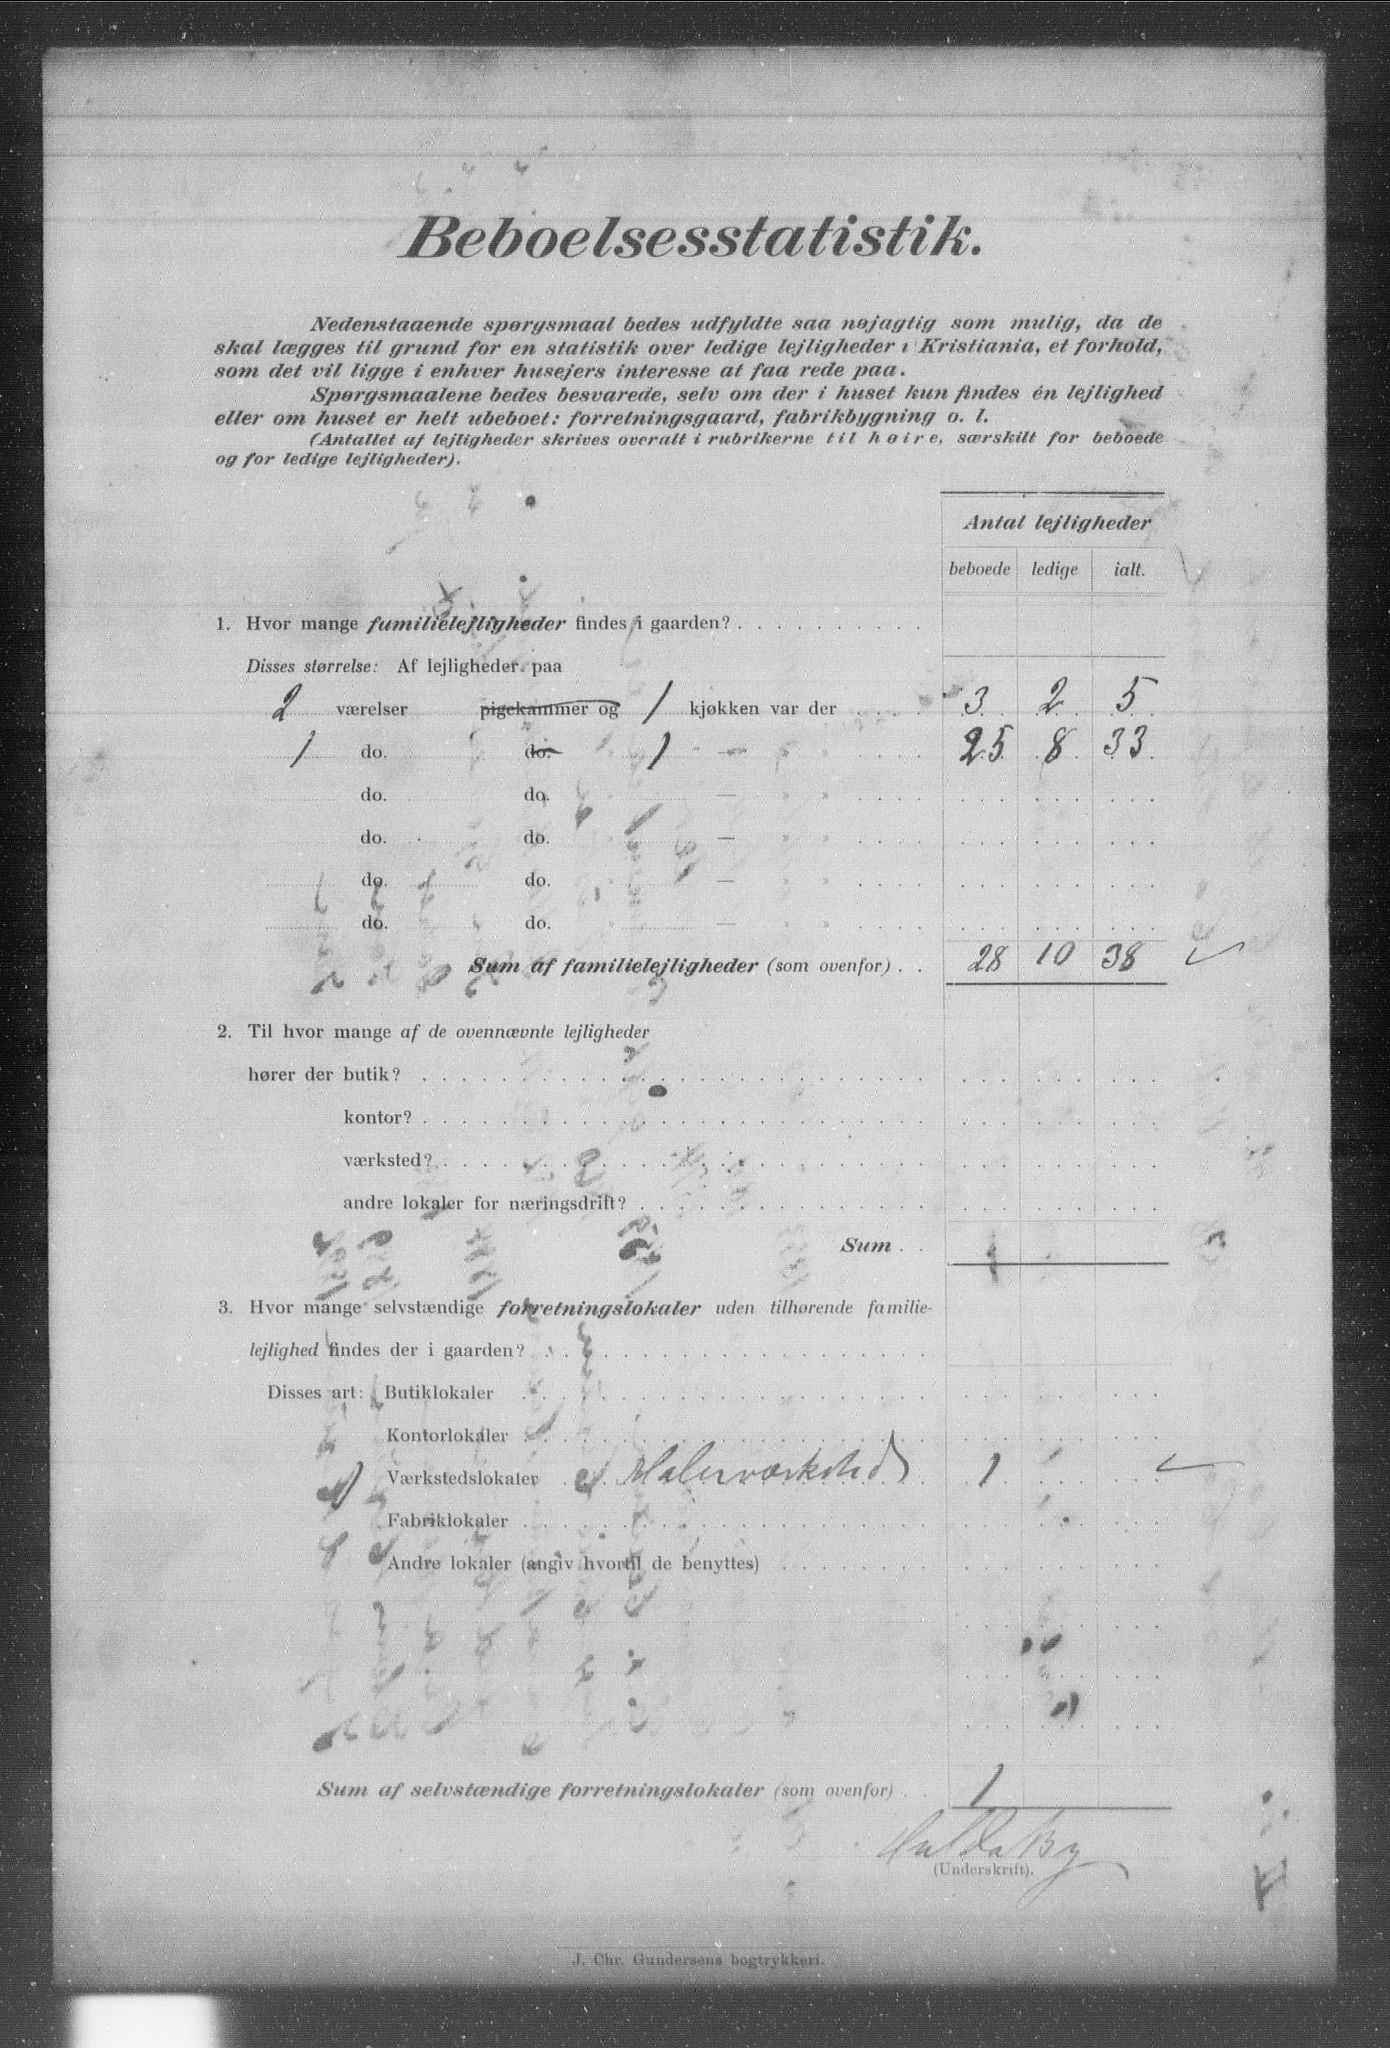 Beboelsesstatistik.
Nedenstaaende spørgsmaal bedes udfyldte saa nøjagtig som mulig, da de
skal lægges til grund for en statistik over ledige lejligheder i Kristiania, et forhold,
som det vil ligge i enhver husejers interesse at faa rede paa.
Spørgsmaalene bedes besvarede, selv om der i huset kun findes én lejlighed
eller om huset er helt ubeboet: forretningsgaard, fabrikbygning o. l.
(Antallet af lejligheder skrives overalt i rubrikerne til høire, særskilt for beboede
og for ledige lejligheder).
Antal lejligheder
beboede ledige ialt.
1. Hvor mange familielejligheder findes i gaarden? . . . . . . . . . .
Disses størrelse: Af lejligheder paa
2 værelser pigekammer og 1 kjøkken var der . . . . 3 2 5
1 do. do. 1 — » » . . . . 25 8 33
do. do. — » » . . . .
do. do. — » » . . . .
do. do. — » » . . . .
do. do. — » » . . . .
Sum af familielejligheder (som ovenfor) . . 28 10 38
2. Til hvor mange af de ovennævnte lejligheder
hører der butik?
kontor?
værksted?
andre lokaler for næringsdrift?
Sum . .
3. Hvor mange selvstændige forretningslokaler uden tilhørende familie-
lejlighed findes der i gaarden?
Disses art: Butiklokaler
Kontorlokaler
1 Værkstedslokaler Malerværksted 1
Fabriklokaler
Andre lokaler (angiv hvortil de benyttes)
Sum af selvstændige forretningslokaler (som ovenfor) . . 1
Hulda By
(Underskrift).
J. Chr. Gundersens bogtrykkeri.